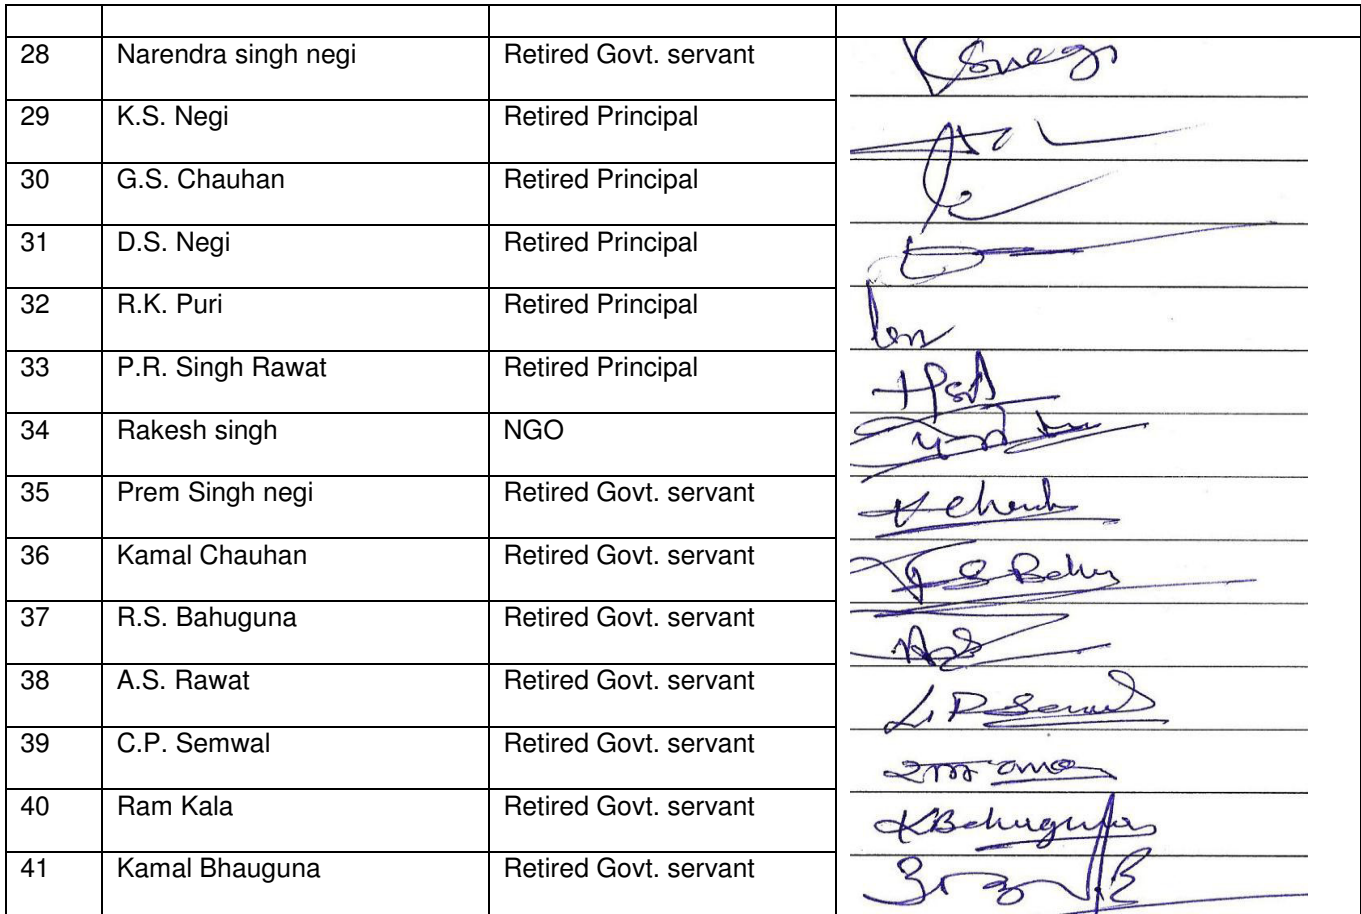 28 Narendra singh negi Retired Govt. servant
29 K.S. Negi Retired Principal
30 G.S. Chauhan Retired Principal
31 D.S. Negi Retired Principal
32 R.K. Puri Retired Principal
33 P.R. Singh Rawat Retired Principal
34 Rakesh singh NGO
35 Prem Singh negi Retired Govt. servant
36 Kamal Chauhan Retired Govt. servant
37 R.S. Bahuguna Retired Govt. servant
38 A.S. Rawat Retired Govt. servant
39 C.P. Semwal Retired Govt. servant
40 Ram Kala Retired Govt. servant
41 Kamal Bhauguna Retired Govt. servant